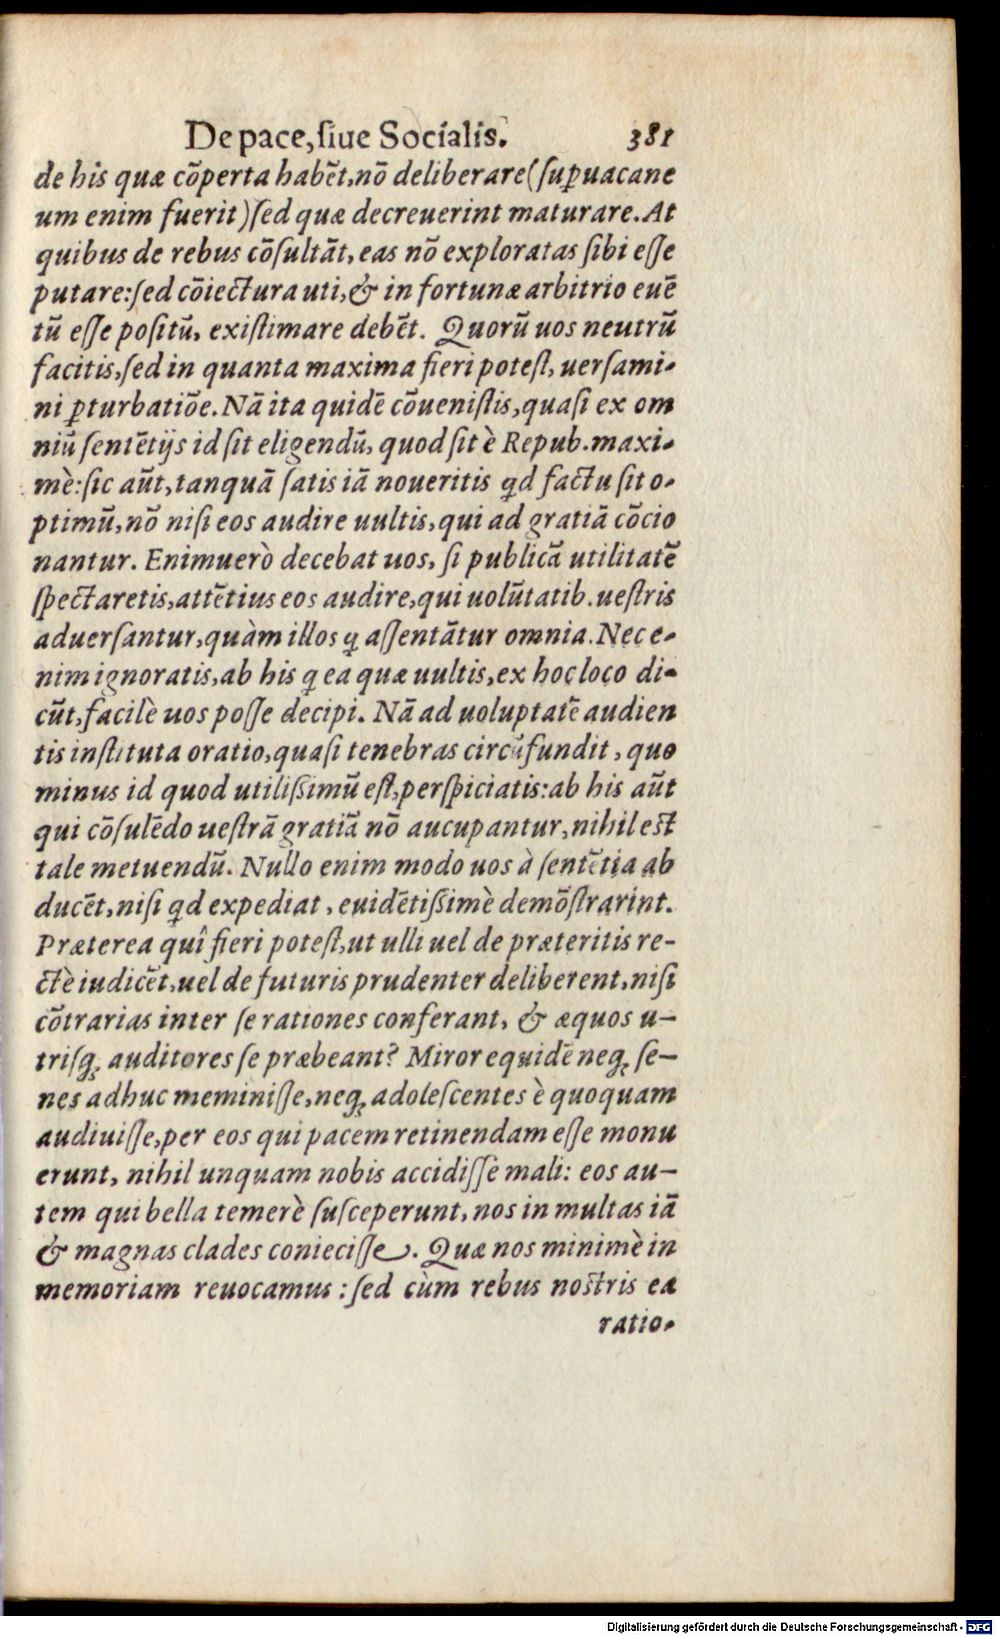 De pace, ſiue Socialis. 381
de his quæ cōperta habēt, nō deliberare (ſuꝑuacane
um enim fuerit) ſed quæ decreuerint maturare. At
quibus de rebus cōſultāt, eas nō exploratas ſibi eſſe
putare: ſed cōiectura uti, & in fortunæ arbitrio euē
tū eſſe poſitū, exiſtimare debēt. Quorū uos neutrū
facitis, ſed in quanta maxima fieri poteſt, uerſami-
ni ꝑturbatiōe. Nā ita quidē cōueniſtis, quaſi ex om
niū ſentētijs id ſit eligendū, quod ſit è Repub. maxi-
mè: ſic aūt, tanquā ſatis iā noueritis qd factu ſit o-
ptimū, nō niſi eos audire uultis, qui ad gratiā cōcio
nantur. Enimuerò decebat uos, ſi publicā utilitatē
ſpectaretis, attētius eos audire, qui uolūtatib. ueſtris
aduerſantur, quàm illos ꝗ aſſentātur omnia. Nec e-
nim ignoratis, ab his ꝗ ea quæ uultis, ex hoc loco di-
cūt, facilè uos poſſe decipi. Nā ad uoluptatē audien
tis inſtituta oratio, quaſi tenebras circūfundit, quo
minus id quod utiliſſimū eſt, perſpiciatis: ab his aūt
qui cōſulēdo ueſtrā gratiā nō aucupantur, nihil est
tale metuendū. Nullo enim modo uos à ſentētia ab
ducēt, niſi qd expediat, euidētiſſimè demōſtrarint.
Præterea quî fieri poteſt, ut ulli uel de præteritis re-
ctè iudicēt, uel de futuris prudenter deliberent, niſi
cōtrarias inter ſe rationes conferant, & æquos u-
triſq; auditores ſe præbeant? Miror equidē neq; ſe-
nes adhuc meminiſſe, neq; adoleſcentes è quoquam
audiuiſſe, per eos qui pacem retinendam eſſe monu
erunt, nihil unquam nobis accidiſſe mali: eos au-
tem qui bella temerè ſuſceperunt, nos in multas iā
& magnas clades conieciſſe. Quæ nos minimè in
memoriam reuocamus: ſed cùm rebus nostris ea
ratio-
Digitalisierung gefördert durch die Deutsche Forschungsgemeinschaft - DFG